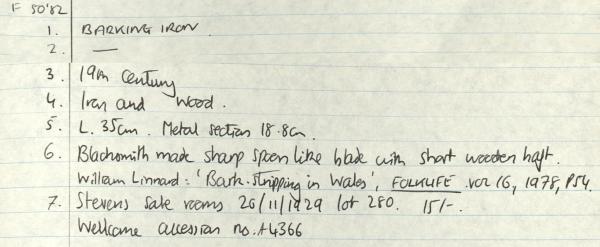 F 50'82
1. BARKING IRON.
2. —
3. 19th Century
4. Iron and wood.
5. L. 35cm. Metal section 18.8cm.
6. Blacksmith made sharp spoon like blade with short wooden haft.
William Linnard: 'Bark-stripping in Wales', FOLKLIFE vol 16, 1978, P54.
7. Stevens Sale rooms 26/11/1929 lot 280. 15/-.
Wellcome accession no. A4366